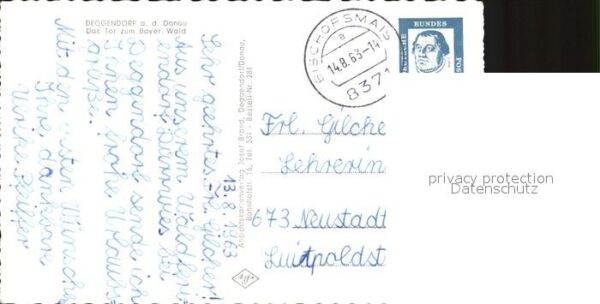 DEGGENDORF a. d. Donau
Das Tor zum Bayer. Wald
13.8.1963
Sehr geehrtes Frl. Gilcher!
Aus unserem Waldferi
endorf Zermwies bei
Deggendorf send ich
Ihnen frohe Urlaubs
grüße.
Mit den besten Wünschen
Ihre dankbare
Ansichtskartenverlag Josef Brand, Deggendorf/Donau,
Bahnhofstr. 16, Tel. 531 - Bestell-Nr. 281
BISCHOFSMAIS
a
14.8.63-14
8371
BUNDES
POS
Frl. Gilche
Lehrerin
673 Neustadt
Luitpoldst
privacy protection
Datenschutz